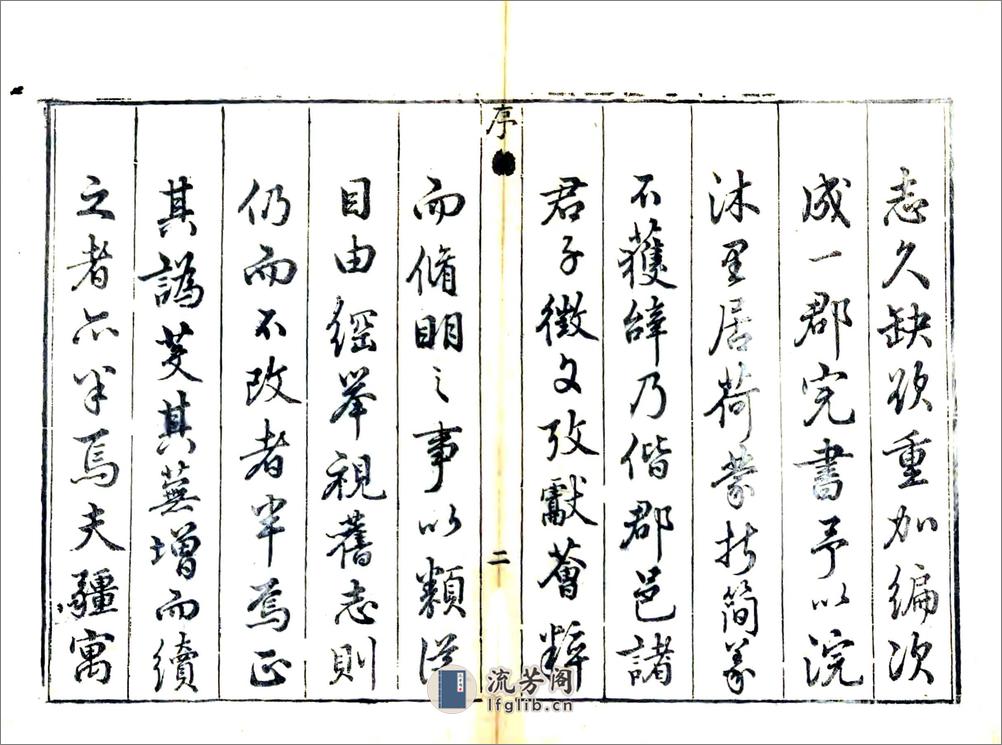 志久缺欲重加編次
成一郡完書予以浣
沐里居荷蒙折簡義
不獲辭乃偕郡邑諸
君子徵文攷獻薈粹
序
二
而脩明之事以類從
目由綱舉視舊志則
仍而不改者半焉正
其譌芟其蕪增而續
之者亦半焉夫疆寓
流芳阁
lfglib.cn